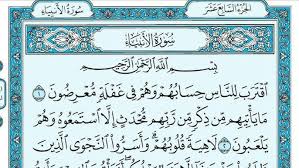 سُورَةُ الأَنبِيَاءِ
الجُزءُ السَّابِعَ عَشَرَ
سُورَةُ الأَنبِيَاءِ
بِسْمِ اللَّهِ الرَّحْمَٰنِ الرَّحِيمِ
ٱقْتَرَبَ لِلنَّاسِ حِسَابُهُمْ وَهُمْ فِى غَفْلَةٍ مُّعْرِضُونَ ١
مَا يَأْتِيهِم مِّن ذِكْرٍ مِّن رَّبِّهِم مُّحْدَثٍ إِلَّا ٱسْتَمَعُوهُ وَهُمْ
يَلْعَبُونَ ٢ لَاهِيَةً قُلُوبُهُمْ وَأَسَرُّوا۟ ٱلنَّجْوَى ٱلَّذِينَ